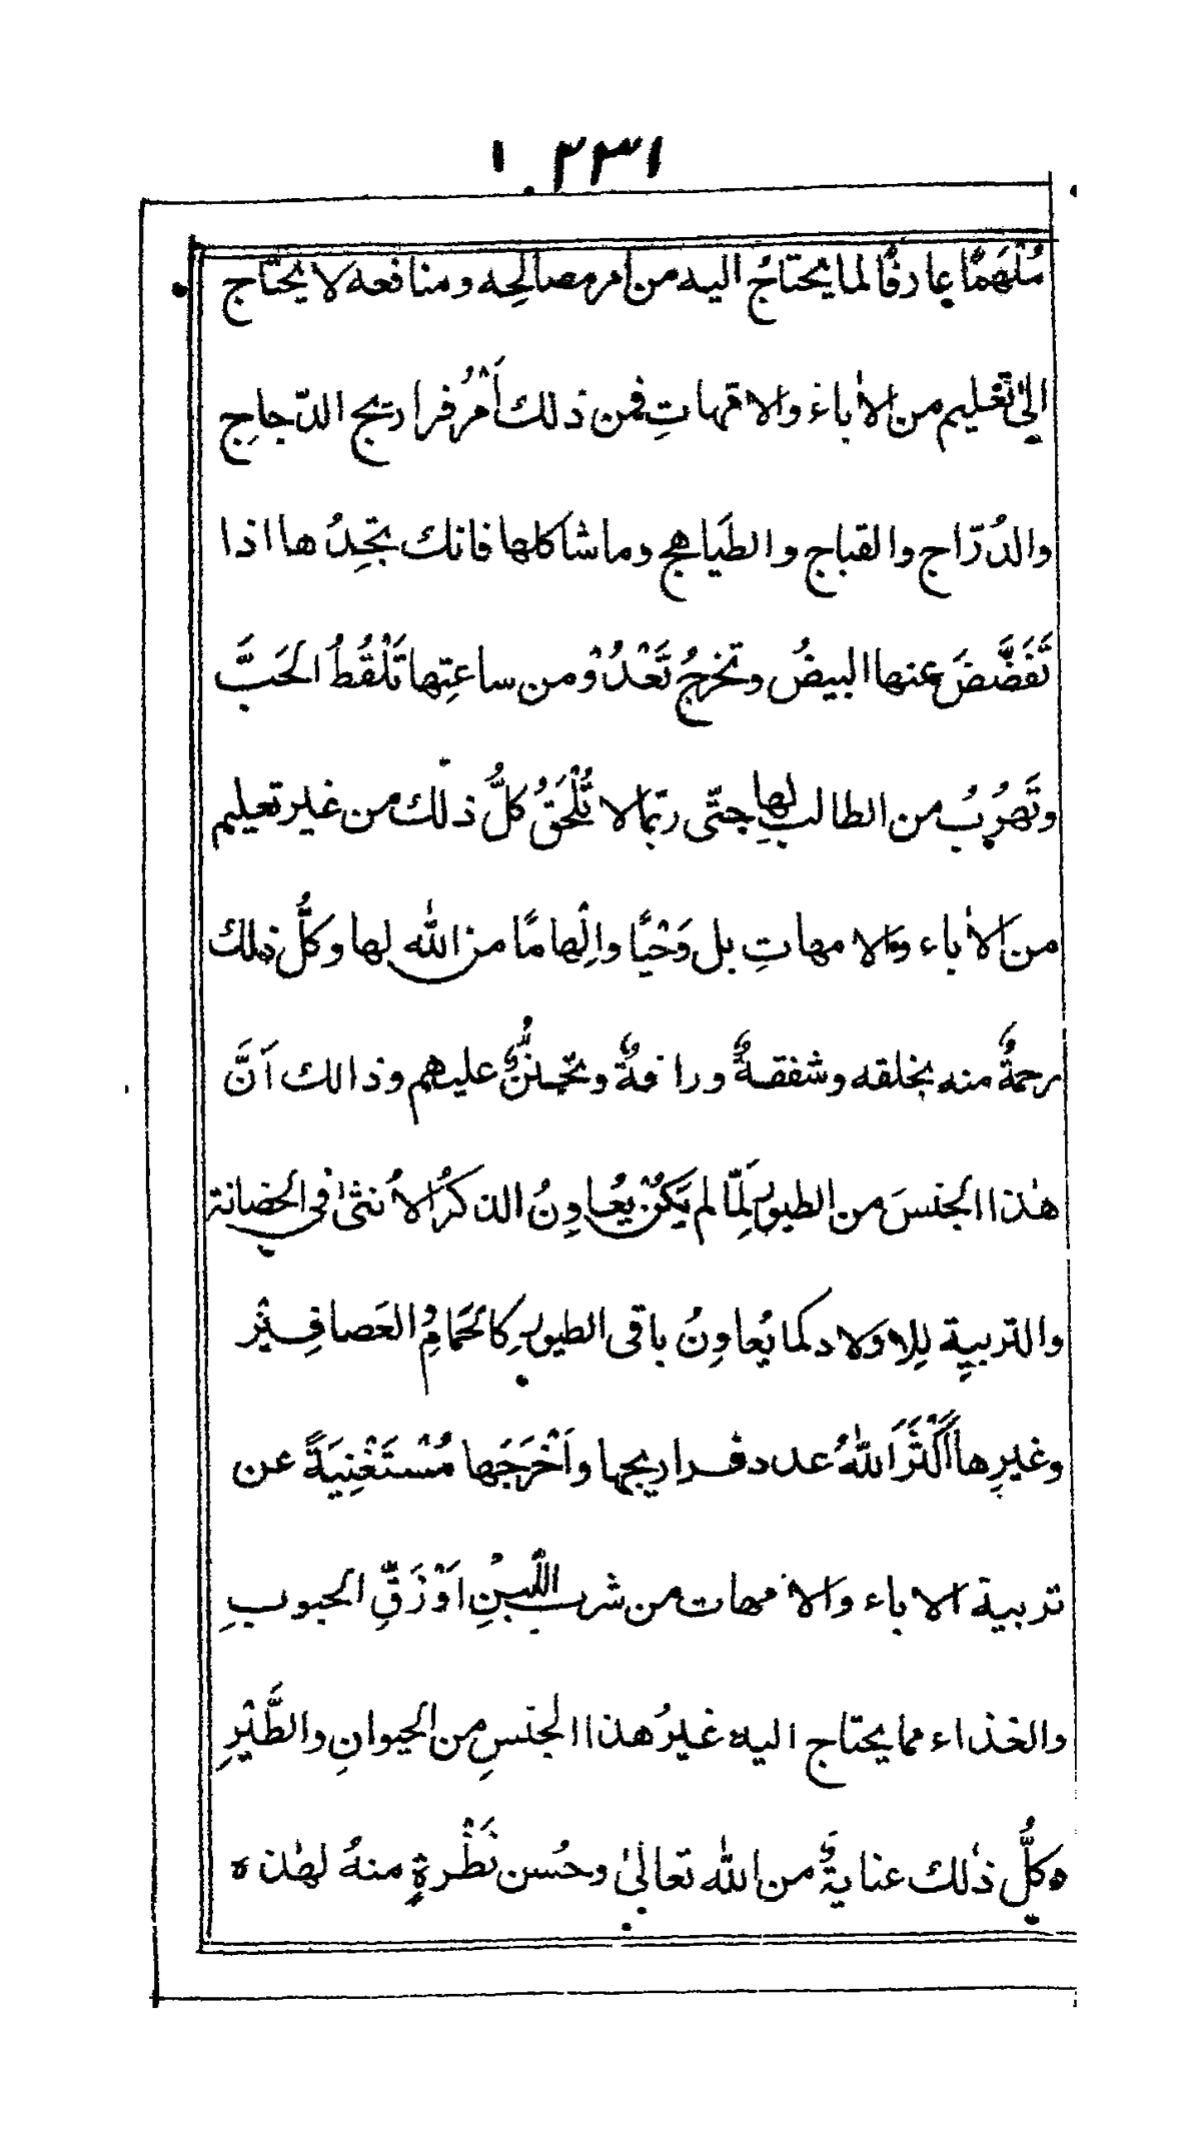 ١٣٢٠١
مُلْهَمًا عارفًا لما يُحتاجُ اليه من امر مصالِحِه و منافعه لا يُحتاج
الىٰ تَعْليم من الاٰباء والامّهاتِ فمن ذلك أَمْرُ فراريج الدّجاجِ
والدُرّاج والقباج والطَياهج وما شاكلها فانك تجِدُها اذا
تَفَضَّضَ عنها البيضُ وتخرجُ تَعْدُوْ من ساعتِها تَلْقُطُ الحَبَّ
وتَهرُبُ من الطالب لها حتّى ربّما لا تُلْحَقُ كلُّ ذلك من غير تعليم
من الاٰباء والامهاتِ بل وَحْيًا واِلْهامًا من الله لها وكلُّ ذلك
رحمةٌ منه بخلقه وشفقةٌ ورافةٌ وتحنّنٌ عليهم وذالك اَنَّ
هٰذا الجنسَ من الطيور لِمّا لم يَكُنْ يُعاوِنُ الذكرُ الاُنثىٰ فى الحضانة
والتربيةِ لِلاولاد كما يُعاوِنُ باقى الطيورِ كالحَمَامِ والعَصافِيْرِ
وغيرِها أَكْثَرَ اللهُ عدد فراريجها واَخْرَجَها مُسْتَغْنِيَةً عن
تربية الاباء والامهات من شرب اللَّبَنِ اَوْ زَقِّ الحبوبِ
والغذاء مما يحتاج اليه غيرُ هذا الجنسِ من الحيوانِ والطَّيْرِ
كلُّ ذٰلك عنايةٌ من الله تعالىٰ وحُسن نَظْرةٍ منهُ لهٰذه